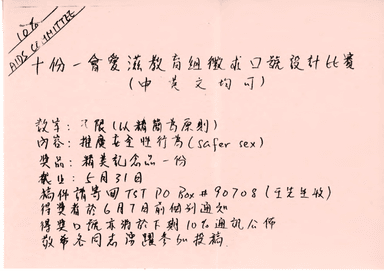 10%
AIDS COMMITTEE
十份一會愛滋教育組徵求口號設計比賽
(中英文均可)
數字:不限(以精簡為原則)
內容:推廣安全性行為(safer sex)
獎品:精美記念品一份
截止:5月31日
稿件請寄回TST PO Box # 90708(王先生收)
得獎者於6月7日前個別通知
得獎口號亦將於下期10%通訊公佈
敬希各同志踴躍參加投稿.